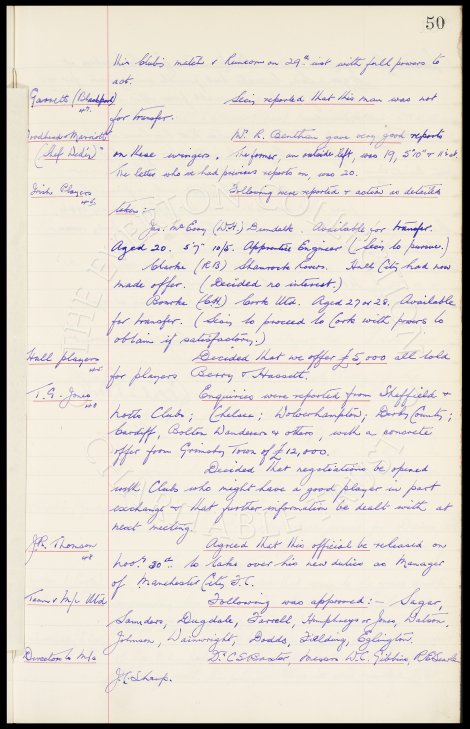 50
this Club's match v Runcorn on 29th inst with full powers to
act.
Garnett (Blackpool) Secy reported that this man was not
for transfer.
Broadhead & Marriott Mr. R. Benthan gave very good reports
(Shef Wed's) on these wingers. The former, an outside left, was 19, 5'10" & 11st.
The latter who we had previous reports on, was 20.
Irish Players Following were reported & action as detailed
taken:-
Jas. McEvoy (W.H) Dundalk. Available for transfer.
Aged 20. 5'7" 10/5. Apprentice Engineer (Secy to pursue.)
Clarke (R.B) Shamrock Rovers. Hull City had now
made offer. (Decided no interest.)
Bourke (C.H) Cork Utd. Aged 27 or 28. Available
for transfer. (Secy to proceed to Cork with powers to
obtain if satisfactory.)
Hull players Decided that we offer £5,000 all told
for players Berry & Hassett.
T. G. Jones Enquiries were reported from Sheffield &
Notts Clubs; Chelsea; Wolverhampton; Derby County;
Cardiff, Bolton Wanderers & others, with a concrete
offer from Grimsby Town of £12,000.
Decided that negotiations be opened
with Clubs who might have a good player in part
exchange & that further information be dealt with at
next meeting.
J.R. Thomson Agreed that this official be released on
Novr 30th to take over his new duties as Manager
of Manchester City F.C.
Team v M/c Utd Following was approved:- Sagar,
Saunders, Dugdale, Farrell, Humphreys or Jones, Watson,
Johnson, Wainwright, Dodds, Fielding, Eglington.
Directors to M/c Dr. C.S. Baxter, Messrs W.C. Gibbins, R.E. Searle
J.C. Sharp.